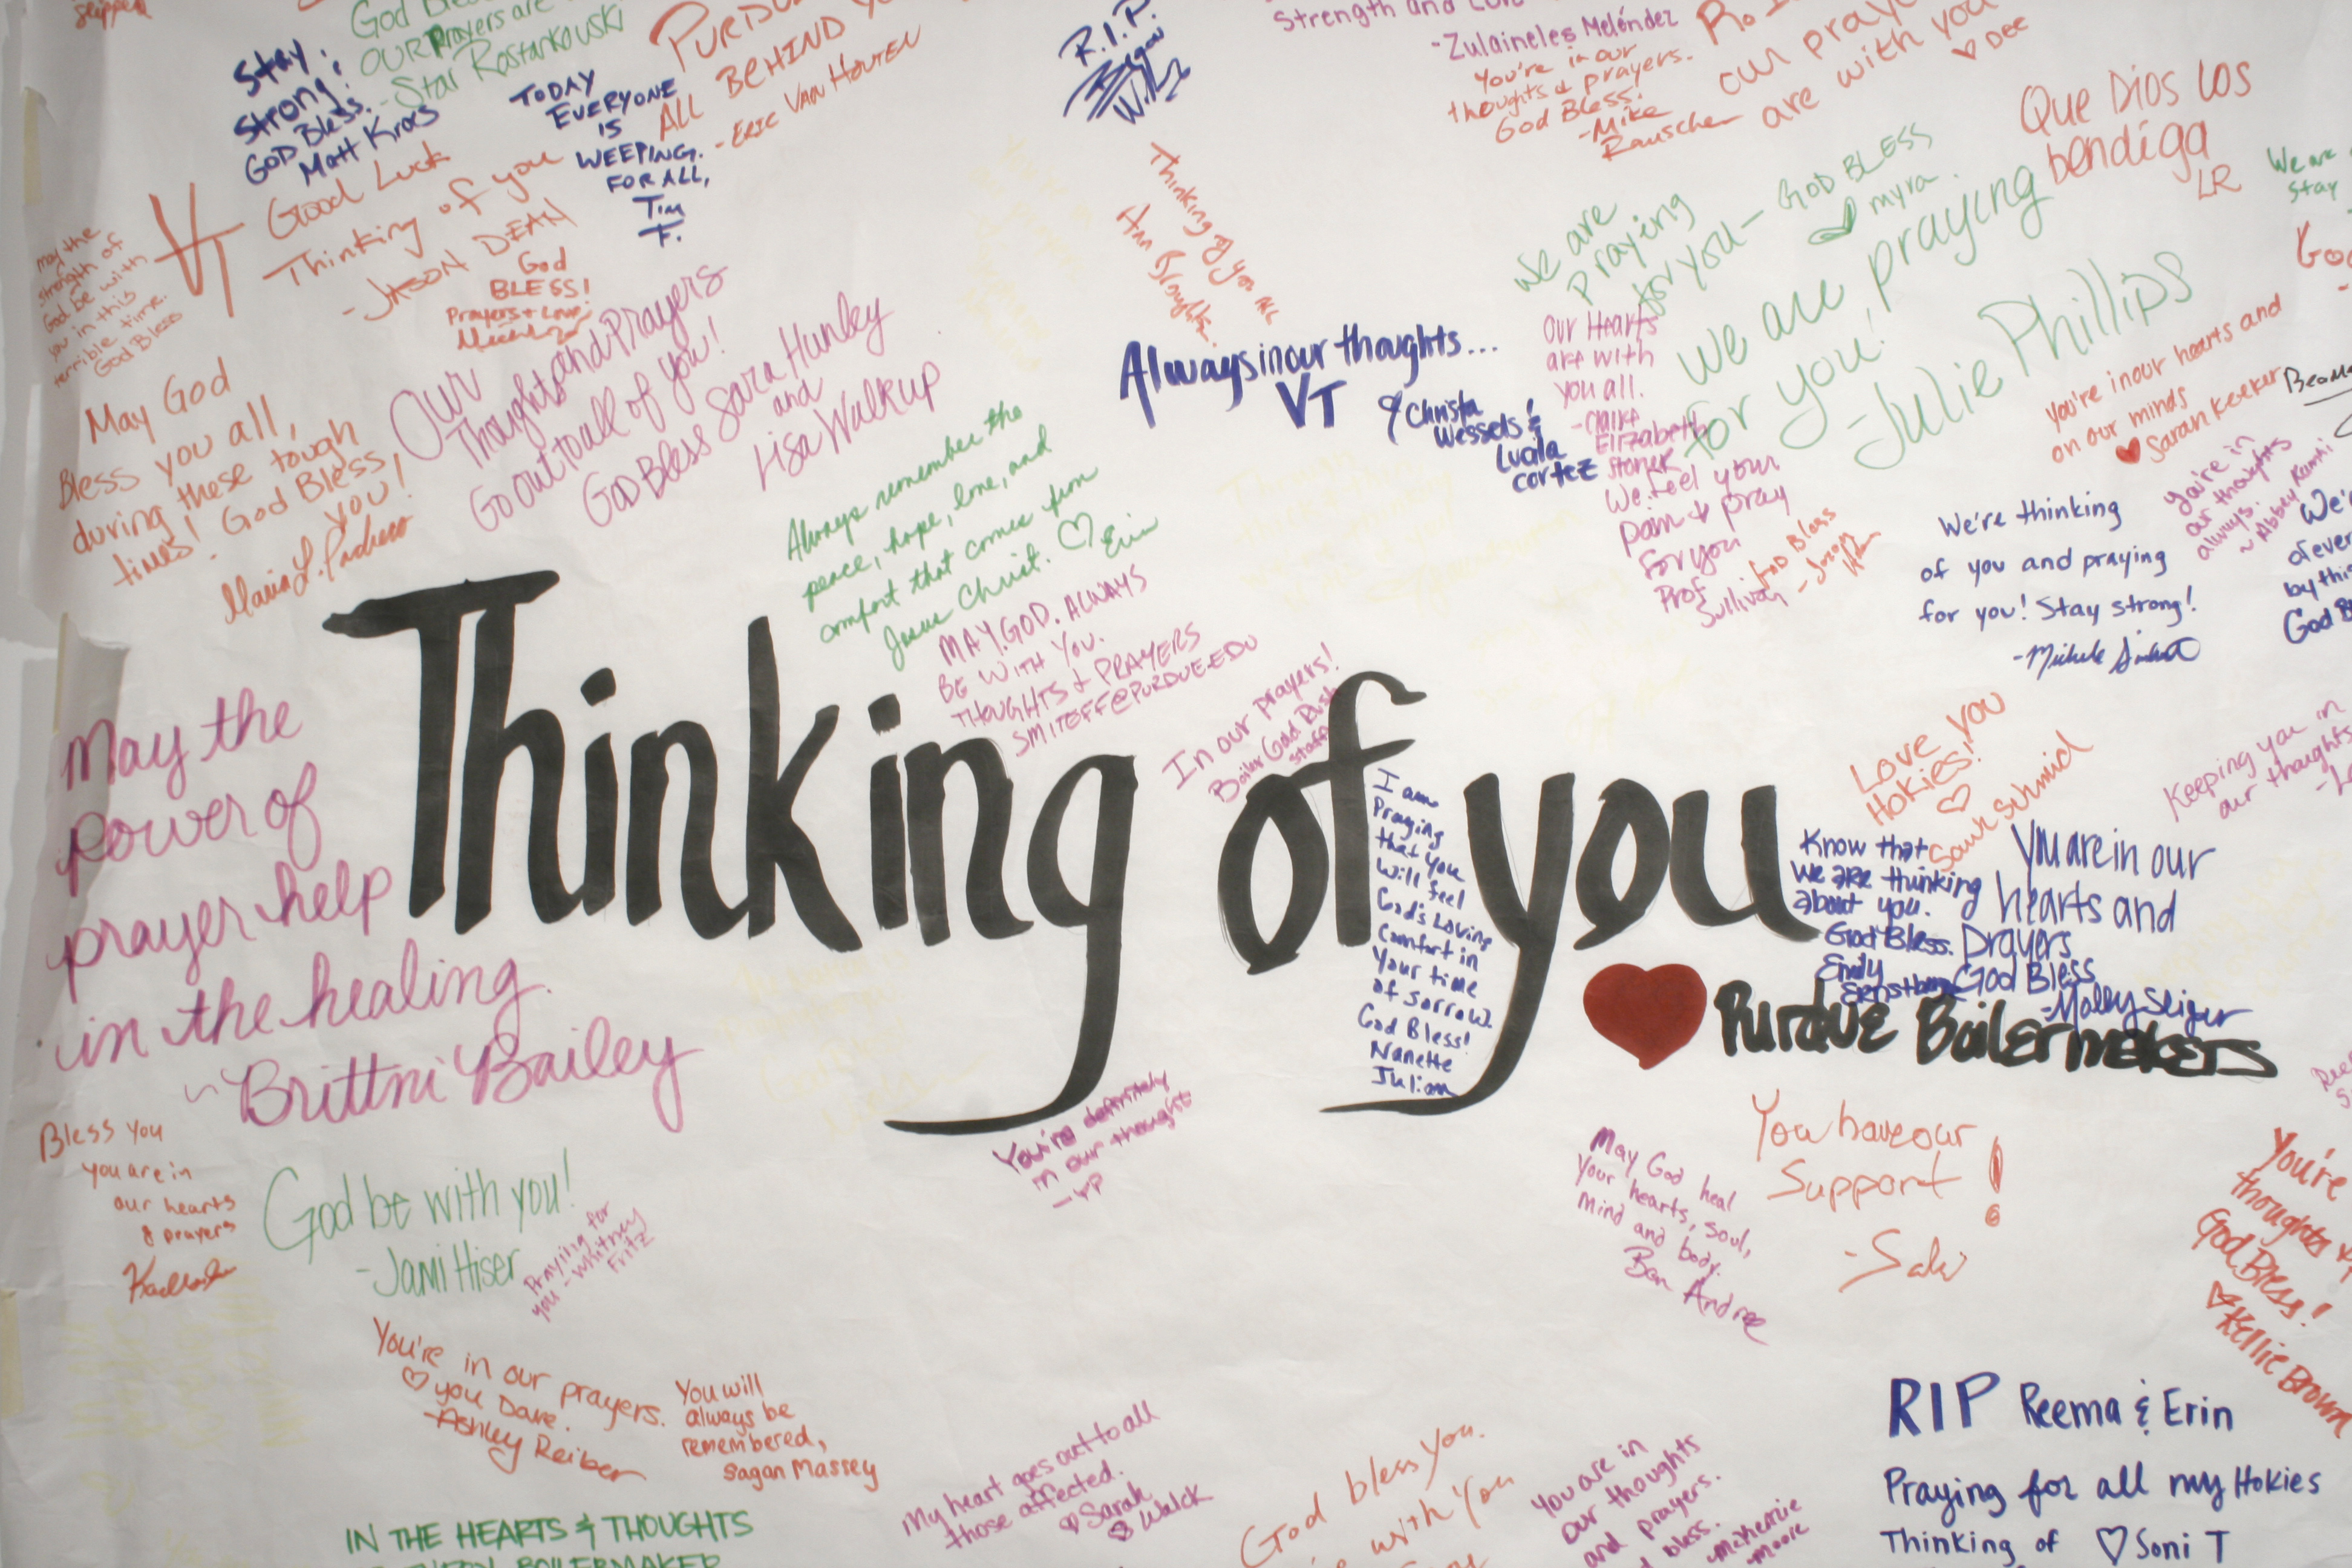 God Bless
OUR Prayers are
-Star Rostankowski
Stay
Strong!
GOD Bless.
Matt Kraes
TODAY
EVERYONE
IS
WEEPING.
FOR ALL,
TIM
F.
PURDUE
ALL BEHIND
-ERIC VAN HOUTEN
R.I.P.
Strength and
-Zulaineles Meléndez
You're in our
thoughts & prayers.
God Bless!
-Mike
Rauscher
our prayers
are with you
♡ DEE
Que Dios los
bendiga
LR
We are
Stay
VT
Good Luck
Thinking of you
-JASON DEAN
God
BLESS!
Prayers + Love
may the
strength of
God be with
you in this
terrible time.
God Bless
May God
Bless you all,
during these tough
times! God Bless
you!
Our
Thoughts and Prayers
Go out to all of you!
God Bless Sara Hunley
and
Lisa Walkup
Thinking of you all
Ann Broughton
Always in our thoughts...
VT
Christa
Wessels &
Lucila
Cortez
We are
Praying
for you -
GOD BLESS
♡ myra.
Our Hearts
are with
you all.
-Claire
Elizabeth
Stoner
We are praying
for you!
-Julie Phillips
You're in our hearts and
on our minds
♥ Sarah Keeker
We feel your
pain & pray
for you
Prof
Sullivan
God Bless
-Jason
You're in
our thoughts
always.
~Abbey
We're thinking
of you and praying
for you! Stay strong!
by this
God B
Always remember the
peace, hope, love, and
comfort that comes from
Jesus Christ. ♡ Erin
MAY GOD ALWAYS
BE WITH YOU.
THOUGHTS & PRAYERS
SMITEFF@PURDUE.EDU
In our prayers!
Boiler Gold Rush
Staff
Thinking of you
♥ Purdue Boilermakers
I am
Praying
that you
will feel
God's Loving
Comfort in
Your time
of sorrow.
God Bless!
Nanette
Julian
May the
power of
prayer help
in the healing.
~Brittni Bailey
Love you
Hokies!
♡
Sarah Schmid
Keeping you in
our thoughts
Know that
we are thinking
about you.
God Bless.
Emily
You are in our
hearts and
prayers
God Bless
-Molly Seiger
Bless you
you are in
our hearts
& prayers
God be with you!
-Jami Hiser
Praying for
you - Whitney
Fritz
You're definitely
in our thought
-YP
May God heal
your hearts, soul,
mind and body.
Ben Andree
You have our
Support!
You're
thoughts
God Bless!
♡ Kellie Brown
You're in our prayers.
♡ you Dave.
-Ashley Reiber
You will
always be
remembered,
Sagan Massey
IN THE HEARTS & THOUGHTS
BOILERMAKER
My heart goes out to all
those affected.
♡ Sarah
♡ Walck
God bless you.
with you
You are in
our thoughts
and prayers.
bless.
-Mckenzie
Moore
RIP Reema & Erin
Praying for all my Hokies
Thinking of ♡ Soni T